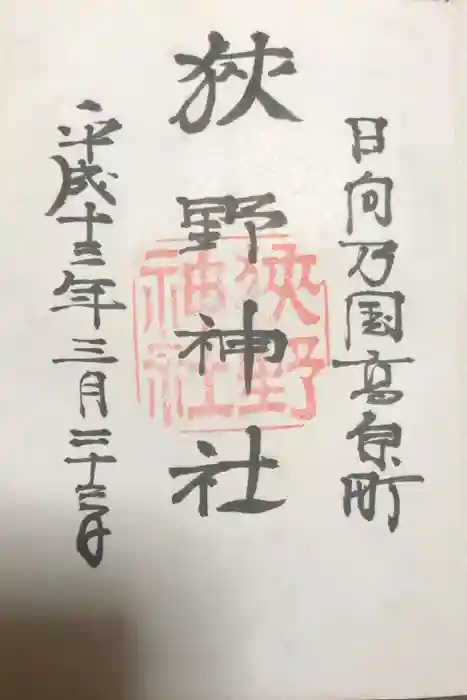 日向乃国高原町
狹野神社
狹野神社
平成十三年三月二十三日